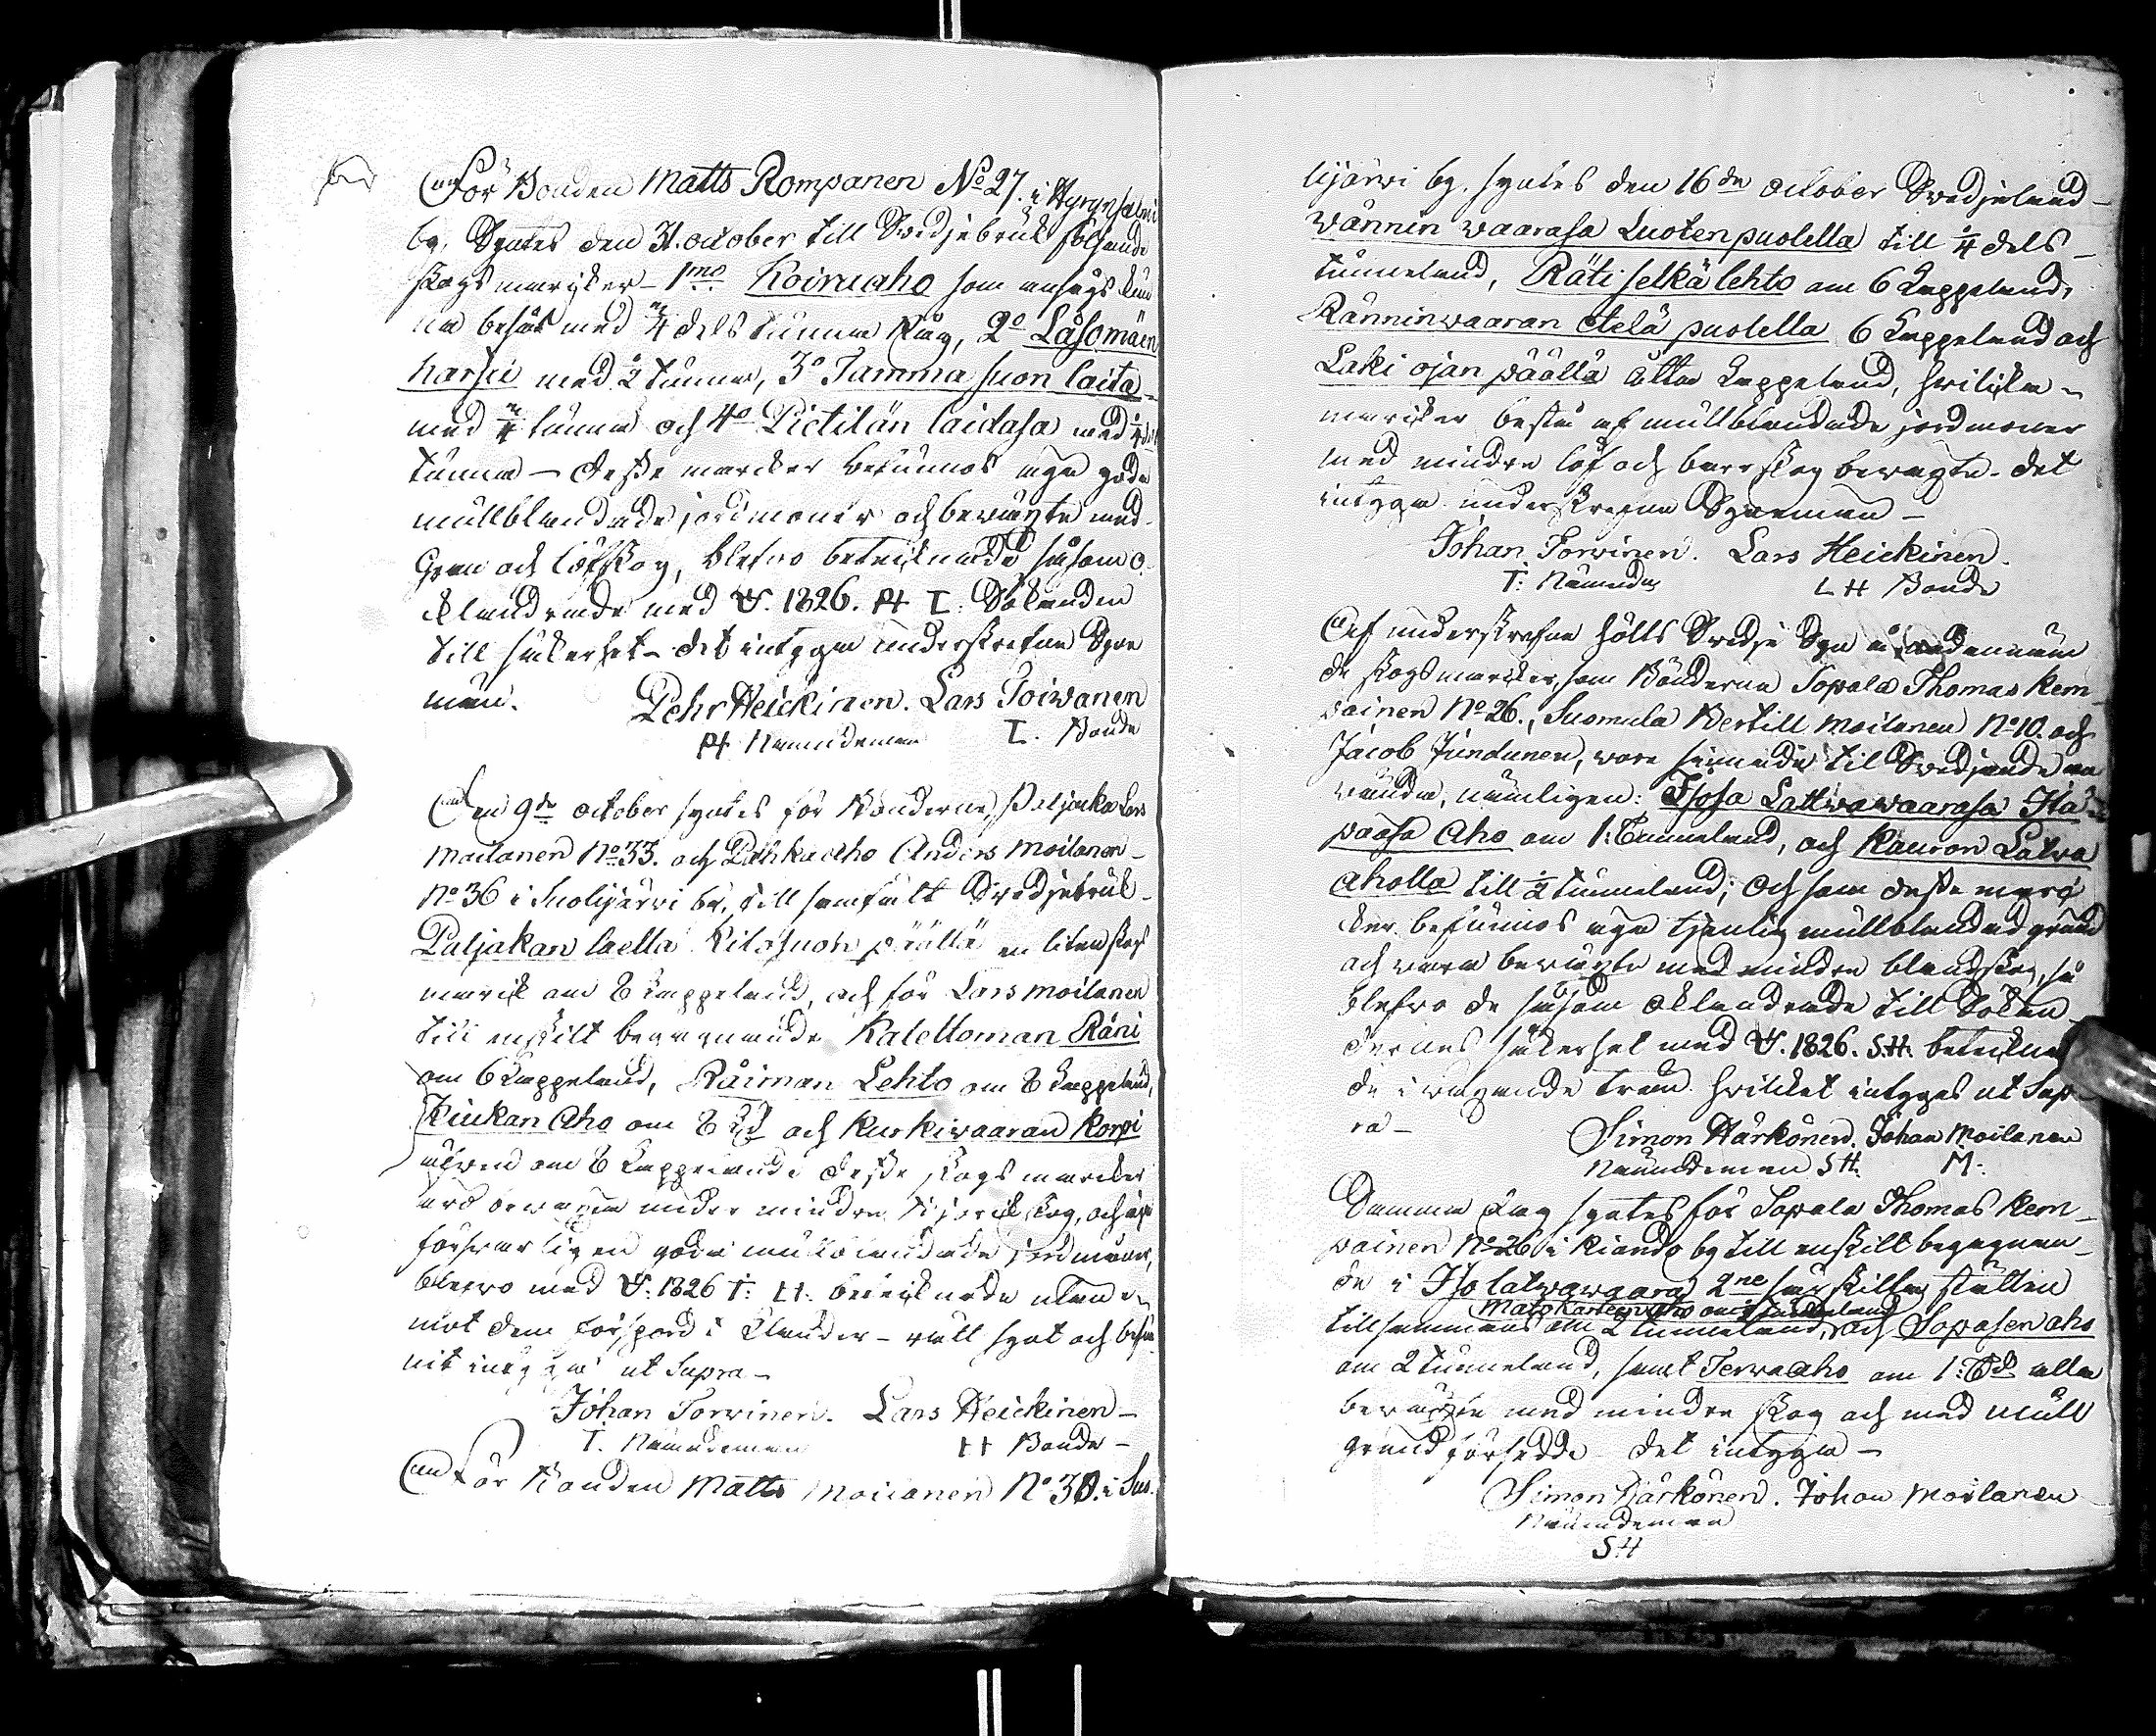 För Bonden Matts Rompanen No 27. i Hyrynsalmi
by, Syntes den 31. october till Svedjebruk följande
skogsmarcker - 1mo Koiruaho som ansågs kun
na besås med 3/4 dels tunna Råg, 2o Låsomäen
harju med 1/2 tunna, 3o Tamma suon laita
med 3/4 tunna och 4o Pietilän laidasa med 1/4 dels
tunna - desse marcker befunnos äga goda
mullblandade jordmoner och beväxte med
Gran och löfskog, blefvo betecknade såsom o-
klandrade med V. 1826. PH T. Sökanden
till säkerhet - det intyga underskrefne Syne
män. Pehr Heickinen. Lars Toiwanen
PH Nämndeman T. Bonde
Den 9de october syntes för Bönderne, Paljacka Lars
Moilanen No 33. och Pahkaaho Anders Moilanen
No 36 i Suolijärvi by, till samfält Svedjebruk
Paljakan laella Kilosuon päällä en liten skogs
marck om 8 kappeland, och för Lars Moilanen
till enskilt begagnande Kalettoman Räni
om 6 Kappeland, Räiman Lehto om 8 kappeland,
Kiukan Aho om 8 Kd och Kurkiwaaran Korpi
äfven om 8 Kappeland desse skogs marcker
äro bevuxna med mindre skog, och äga
försvarligen goda mullblandade jordmoner,
blefvo med V. 1826 T. LH. betecknade utan
mot dem förspord klander - rätt synt och befun
nit intyga ut Supra -
Johan Torvinen. Lars Heickinen -
T. Nämndeman LH Bonde -
För Bonden Matts Moilanen No 30. i Suo
lijärwi by, syntes den 16de october Svedjeland
Wännin waarasa Luoten puolella till 1/4 dels
tunneland, Räti selkä lehto om 6 Kappeland,
Ränninwaaran Etelä puolella 6 Kappeland och
Laki ojan päällä åtta Kappeland, hvilcka
marcker bestå af mullblandade jordmoner
med mindre löf och barrskog bewäxte. det
intyga underskrefne Synemän -
Johan Torvinen. Lars Heickinen.
T. Nämndem LH Bonde
Af underskrefne hölts Svedje Syn å nedannäm
de skogsmarcker, som Bönderne Sopala Thomas Kem
painen No 26., Suomula Bertill Moilanen No 10. och
Jacob Jundunen, voro sinnade til Svedjande an
vända, nämligen: Isosa Lattwawaarasa Ha
paasa Aho om 1. Tunneland, och Kauron Latva
Aholla till 1/2 tunneland; Och som desse marc
ker befunnos äga tjenlig mullblandad grund
och vara beväxte med mindre blandskog, så
blefvo de såsom oklandrade till Sökan
dernes säkerhet med V. 1826. S.H. beteckna
de i växande träd. hvilcket intyges ut Sup
ra - Simon Härkönen. Johan Moilanen
Nämndeman SH. M.
Samma dag syntes för Sopala Thomas Kem
painen No 26 i Kiando by till enskilt begagnan
de i Iso latwawaara 2ne särskilta ställen
tillsammans om 2 tunneland, och Sopasen aho
om 2 tunneland, samt Terwa aho om 1. Td alla
bewäxte med mindre skog och med mull
grund försedde det intyga -
Simon Härkönen. Johan Moilanen
Nämndeman
SH